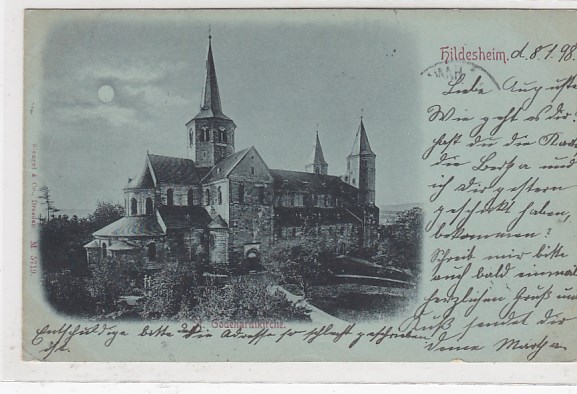 Hildesheim. d. 8.1.98.
Liebe Auguste
Wie geht es dir
hast du die Kart
die Bertha und
ich dir gestern
geschickt haben,
bekommen?
Schreib mir bitte
auch bald einmal
herzlichen Gruß und
Kuß sendet dir
deine Martha
St. Godehardikirche.
Entschuldige bitte die Adresse so schlecht geschrieben
ist.
& Co., Dresden M 5719.